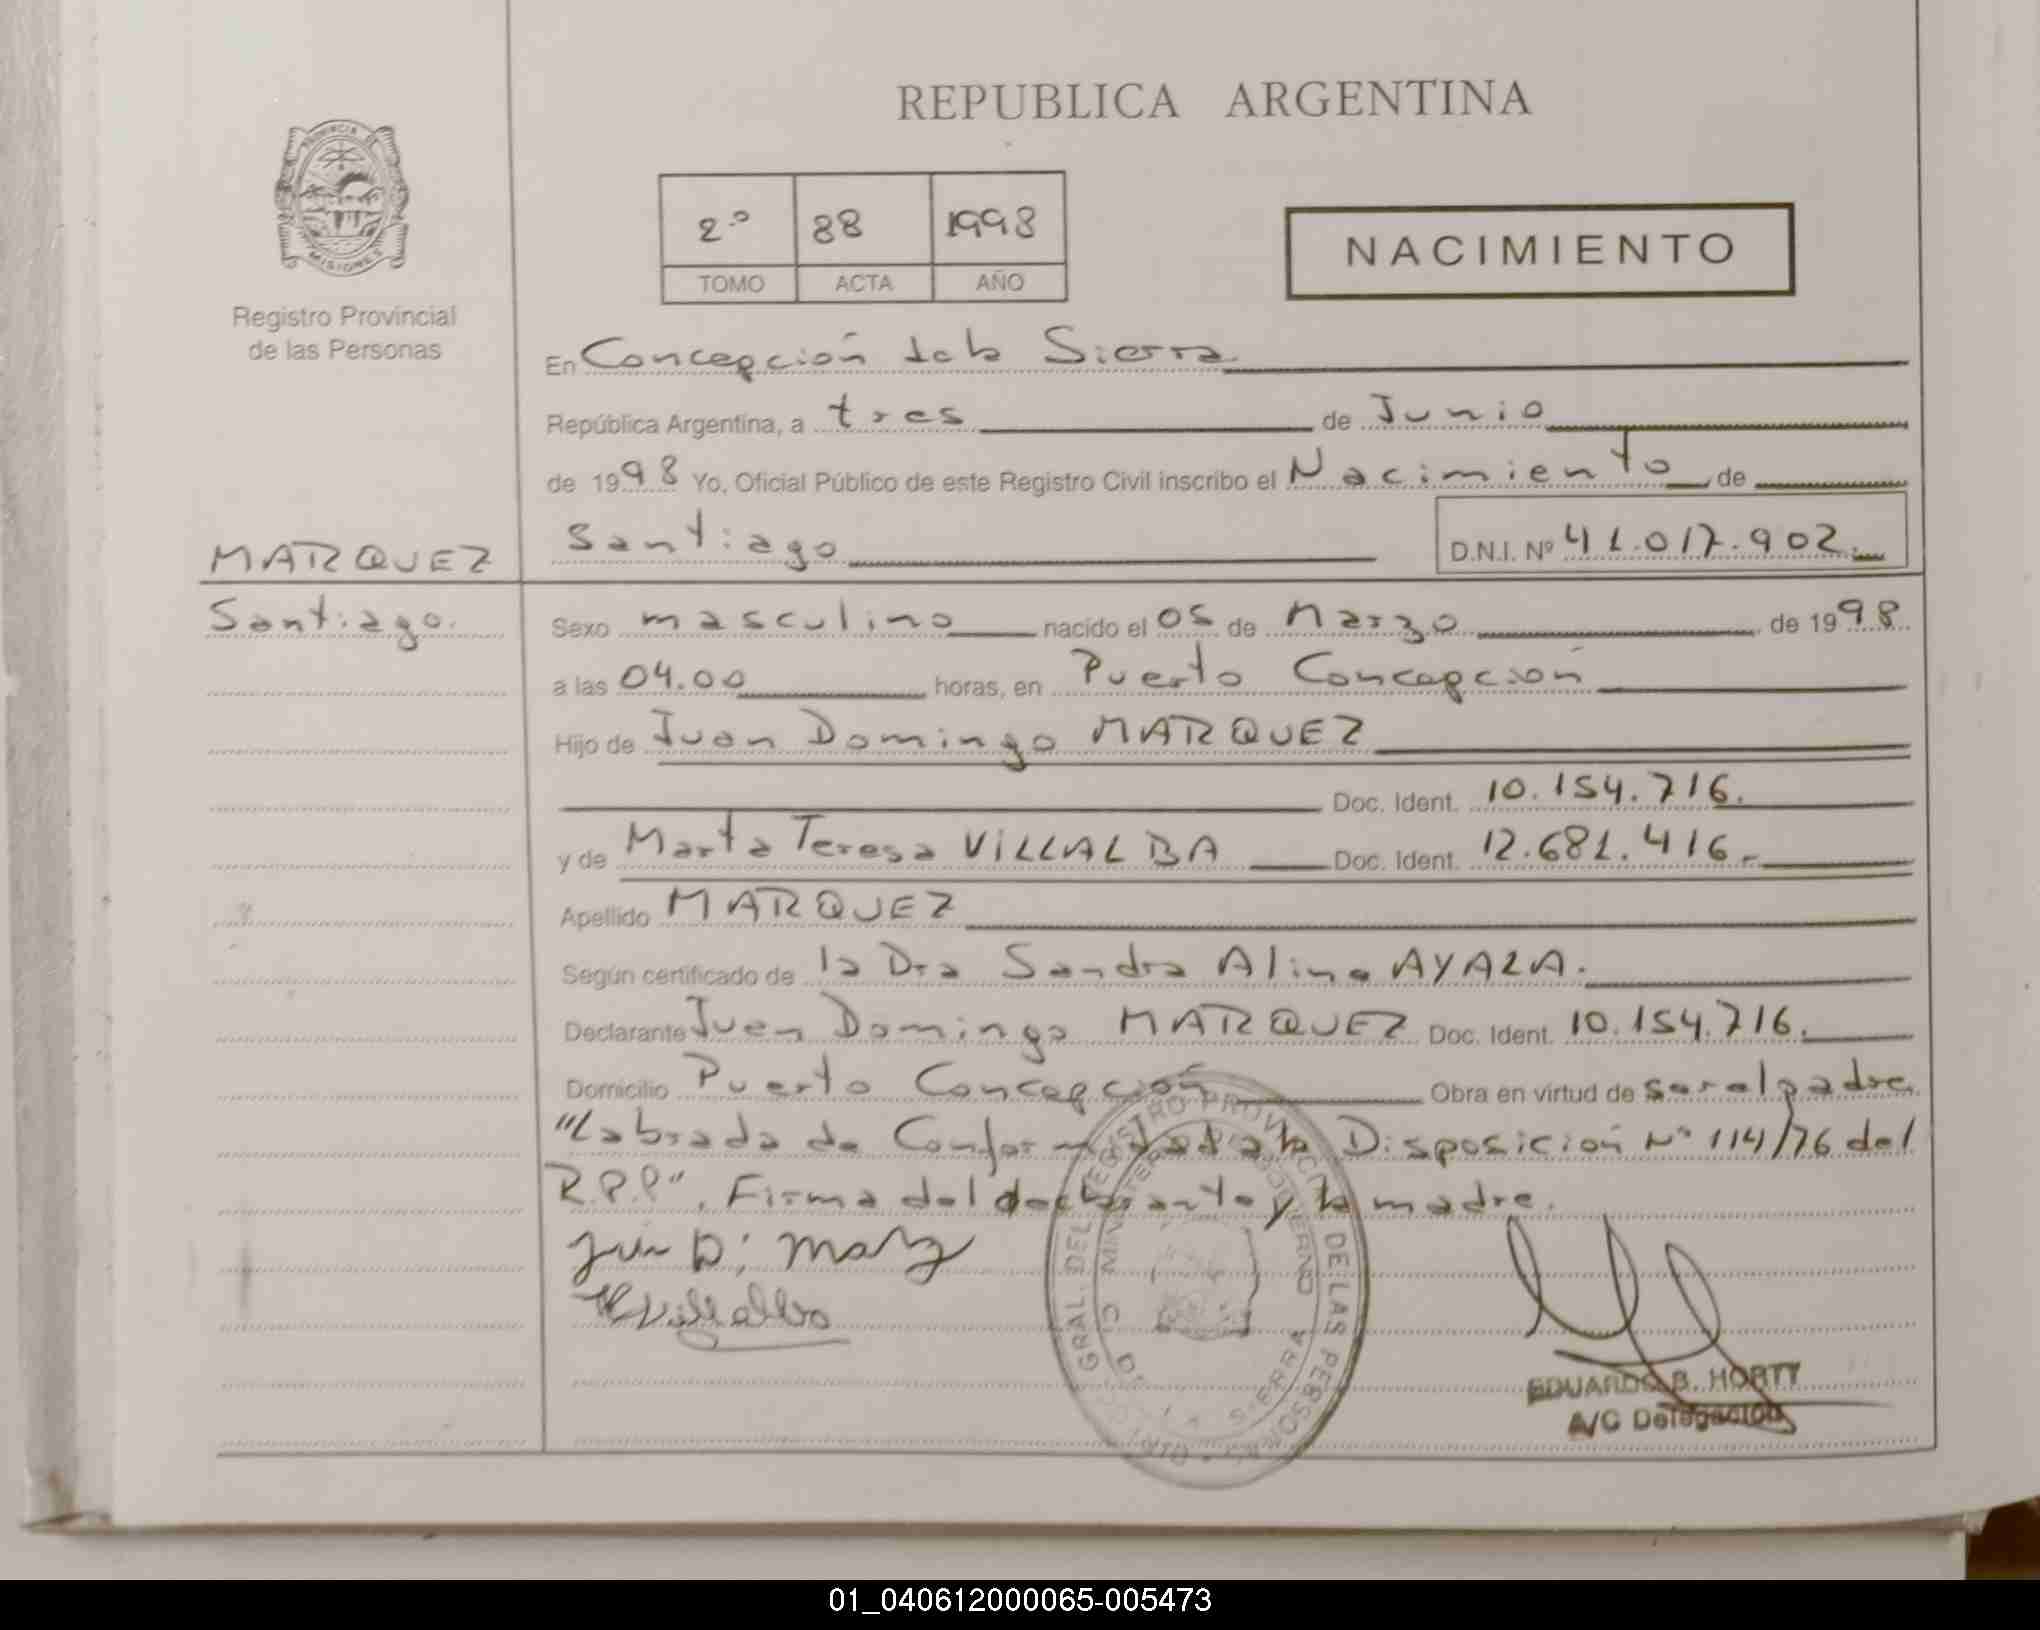 REPUBLICA ARGENTINA
PROVINCIA DE
MISIONES
Registro Provincial
de las Personas
2.º 88 1998
TOMO ACTA AÑO
NACIMIENTO
En Concepción de la Sierra
República Argentina, a tres de Junio
de 1998 Yo, Oficial Público de este Registro Civil inscribo el Nacimiento de
Santiago D.N.I. Nº 41.017.902.
MARQUEZ
Santiago.
Sexo masculino nacido el 05 de Marzo de 1998
a las 04.00 horas, en Puerto Concepción
Hijo de Juan Domingo MARQUEZ
Doc. Ident. 10.154.716.
y de Marta Teresa VILLALBA Doc. Ident. 12.681.416.-
Apellido MARQUEZ
Según certificado de la Dra Sandra Alina AYALA.
Declarante Juan Domingo MARQUEZ Doc. Ident. 10.154.716.
Domicilio Puerto Concepción Obra en virtud de ser el padre.
"Labrada de Conformidad a la Disposición Nº 114/76 del
R.P.P". Firma del declarante y la madre.
GRAL. DEL REGISTRO PROVINCIAL DE LAS PERSONAS
MINISTERIO GOBIERNO
SIERRA
EDUARDO B. HORTY
A/C Delegación
01_040612000065-005473